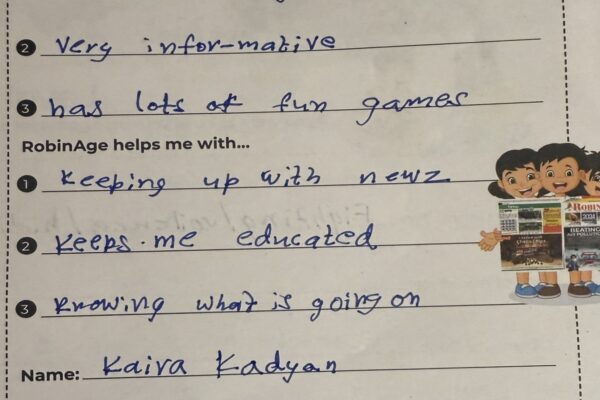 2 Very infor-mative
3 has lots of fun games
RobinAge helps me with...
1 Keeping up with newz
2 Keeps.me educated
3 Knowing what is going on
Name: Kaira Kadyan
ROBIN
BEATING
AIR POLLUTION